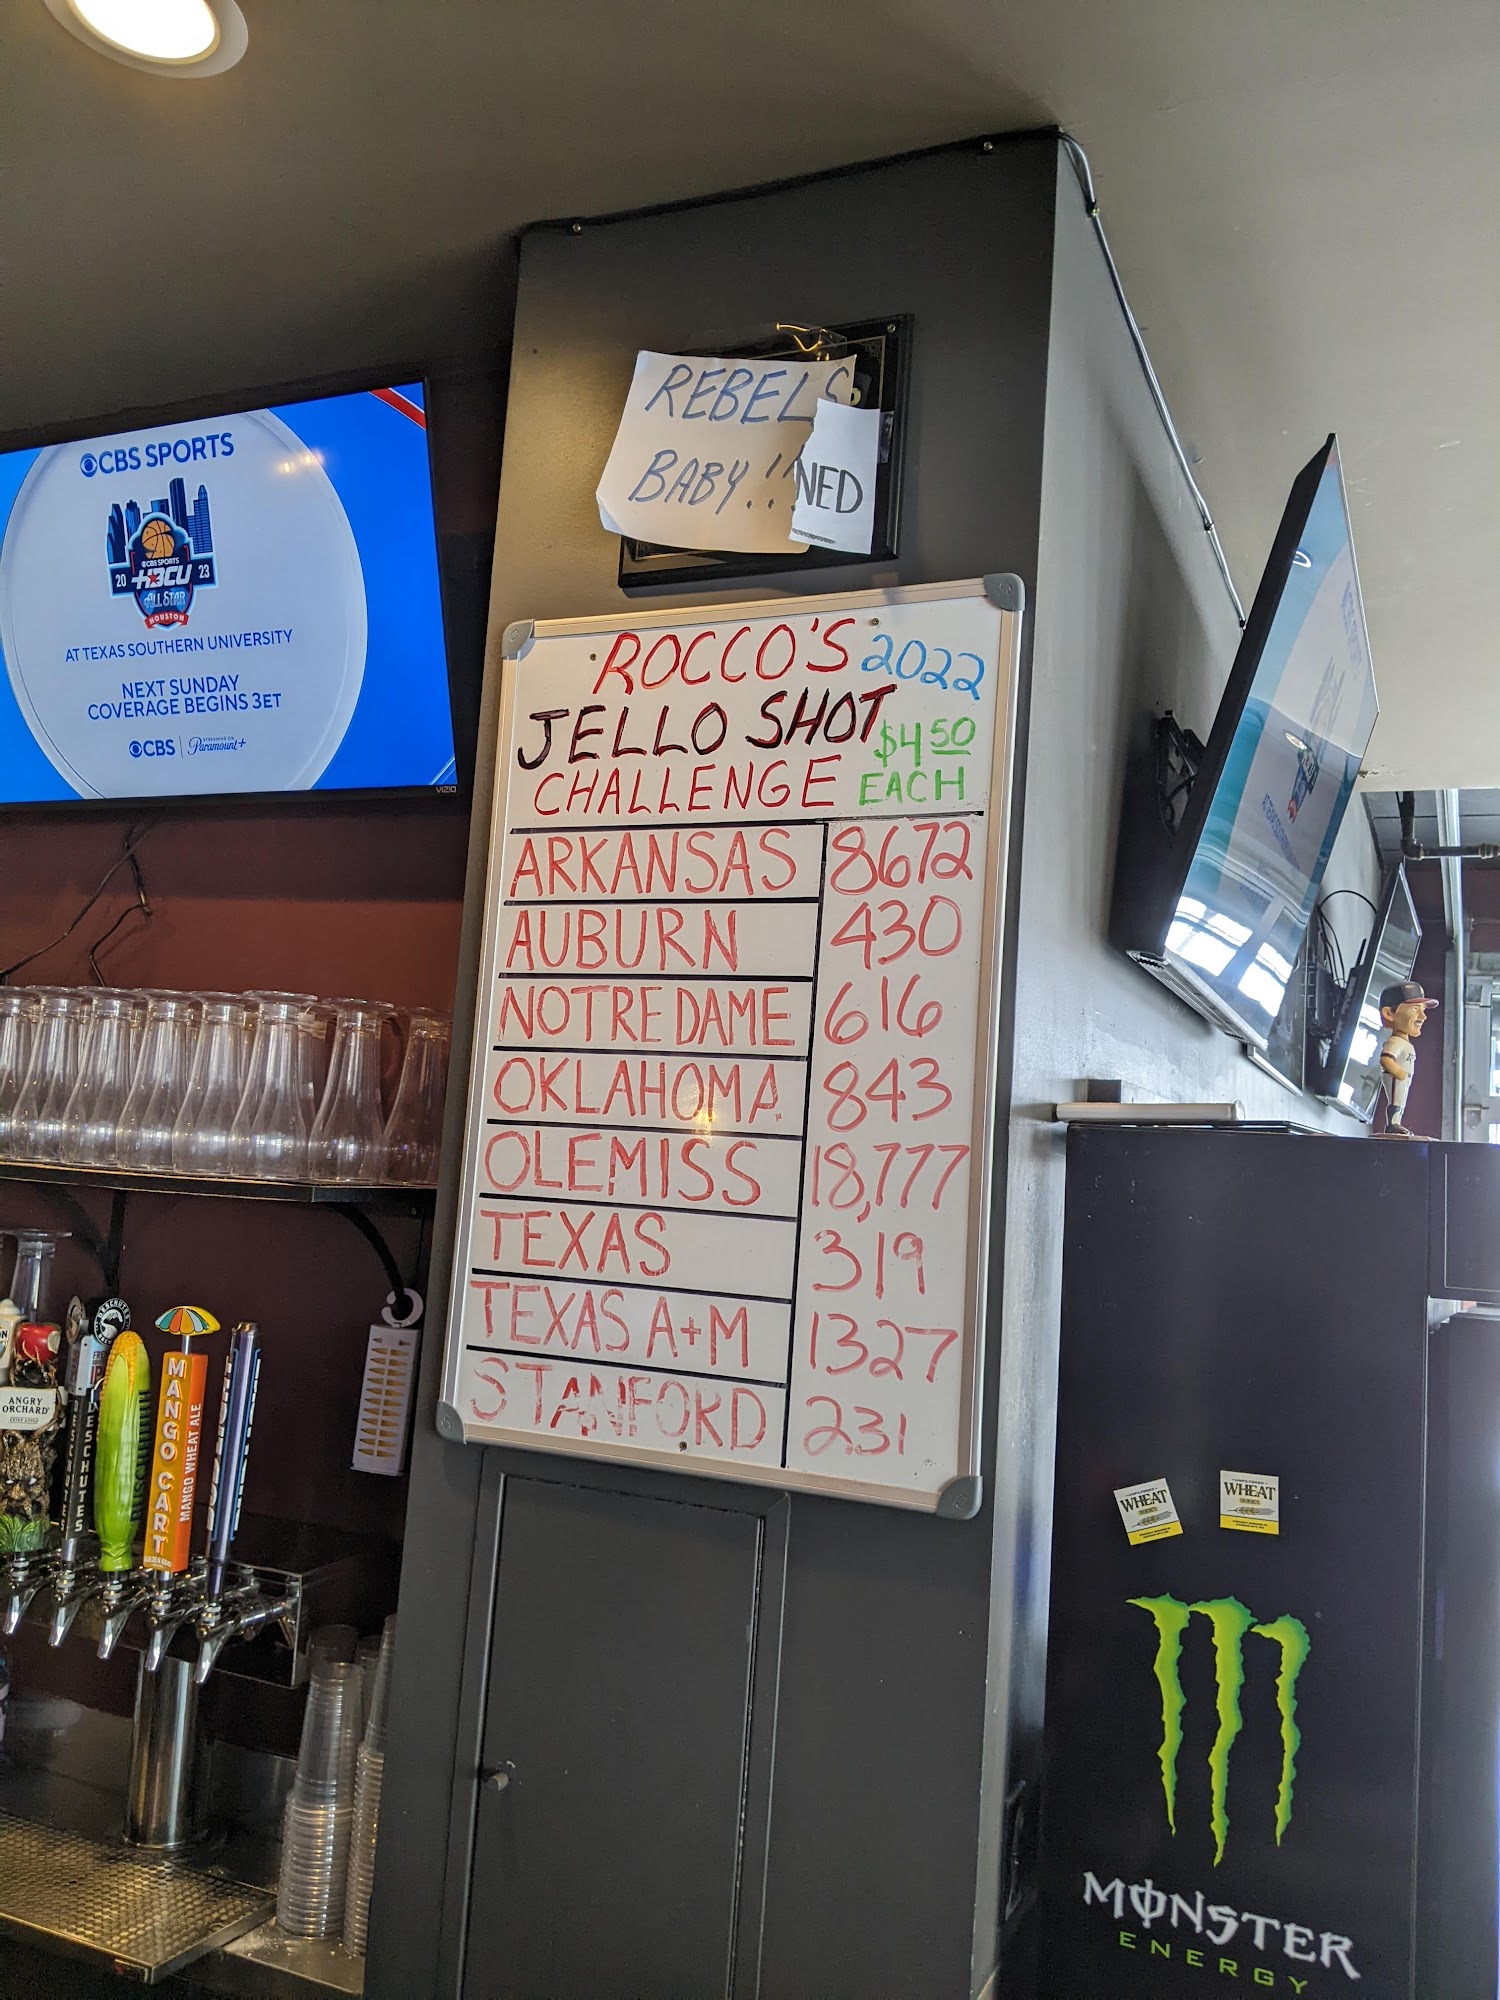 CBS SPORTS
CBS SPORTS
20 HBCU 23
ALL STAR
HOUSTON
AT TEXAS SOUTHERN UNIVERSITY
NEXT SUNDAY
COVERAGE BEGINS 3ET
CBS
STREAMING ON
Paramount+
VIZIO
REBELS
BABY!!
NED
ROCCO'S 2022
JELLO SHOT $4.50
CHALLENGE EACH
ARKANSAS 8672
AUBURN 430
NOTRE DAME 616
OKLAHOMA 843
OLE MISS 18,777
TEXAS 319
TEXAS A+M 1327
STANFORD 231
ANGRY
ORCHARD
DESCHUTES
DESCHUTES
MANGO CART
MANGO WHEAT ALE
UNFILTERED
WHEAT
BEER
UNFILTERED
WHEAT
BEER
MONSTER
ENERGY